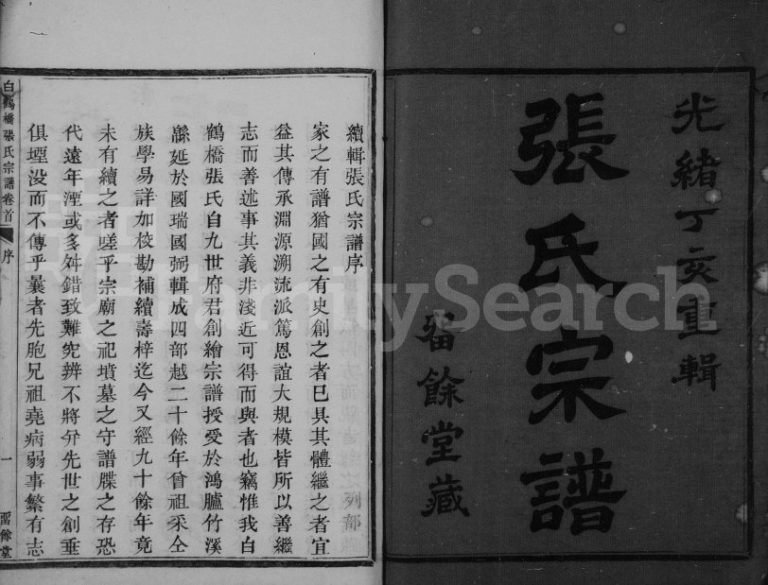 光緒丁亥重輯
張氏宗譜
畱餘堂藏
續輯張氏宗譜序
家之有譜猶國之有史創之者已具其體繼之者宜
益其傳承淵源溯流派篤恩誼大規模皆所以善繼
志而善述事其義非淺近可得而與者也竊惟我白
鶴橋張氏自九世府君創繪宗譜授受於鴻臚竹溪
緜延於國瑞國弼輯成四部越二十餘年曾祖采仝
族學易詳加校勘補續壽梓迄今又經九十餘年竟
未有續之者嗟乎宗廟之祀墳墓之守譜牒之存恐
代遠年湮或多舛錯致難究辨不將夯先世之創垂
俱堙没而不傳乎曩者先胞兄祖堯病弱事繁有志
白鶴橋張氏宗譜卷首
序
一
畱餘堂
FamilySearch